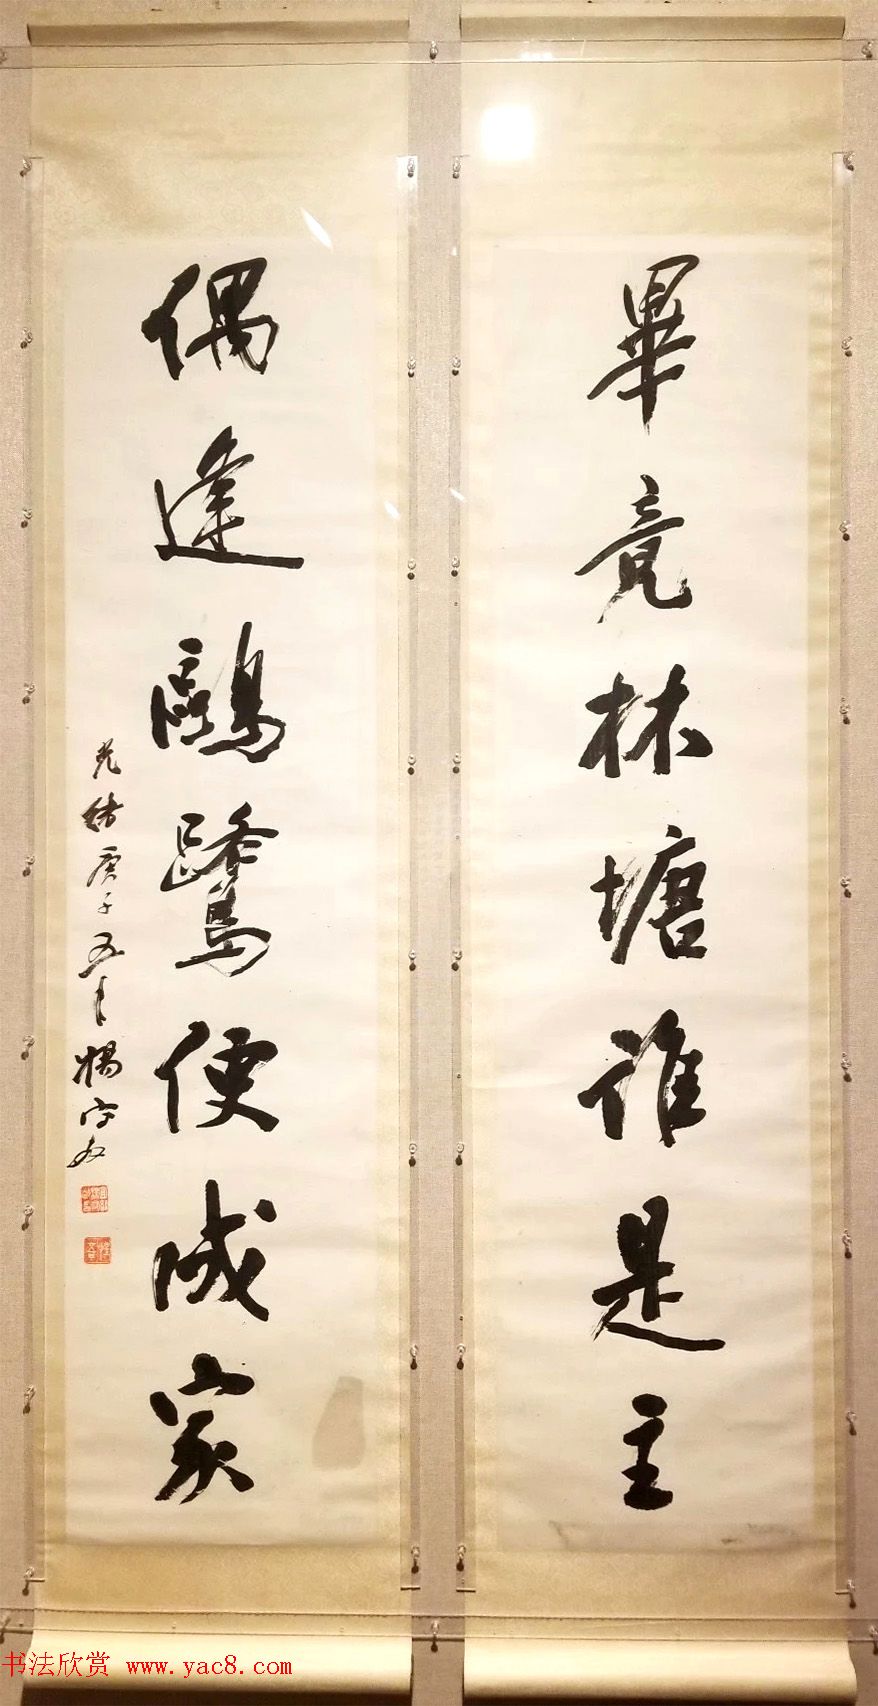 畢竟林塘誰是主
偶逢鷗鷺便成家
光緒庚子五月楊守敬
书法欣赏 www.yac8.com